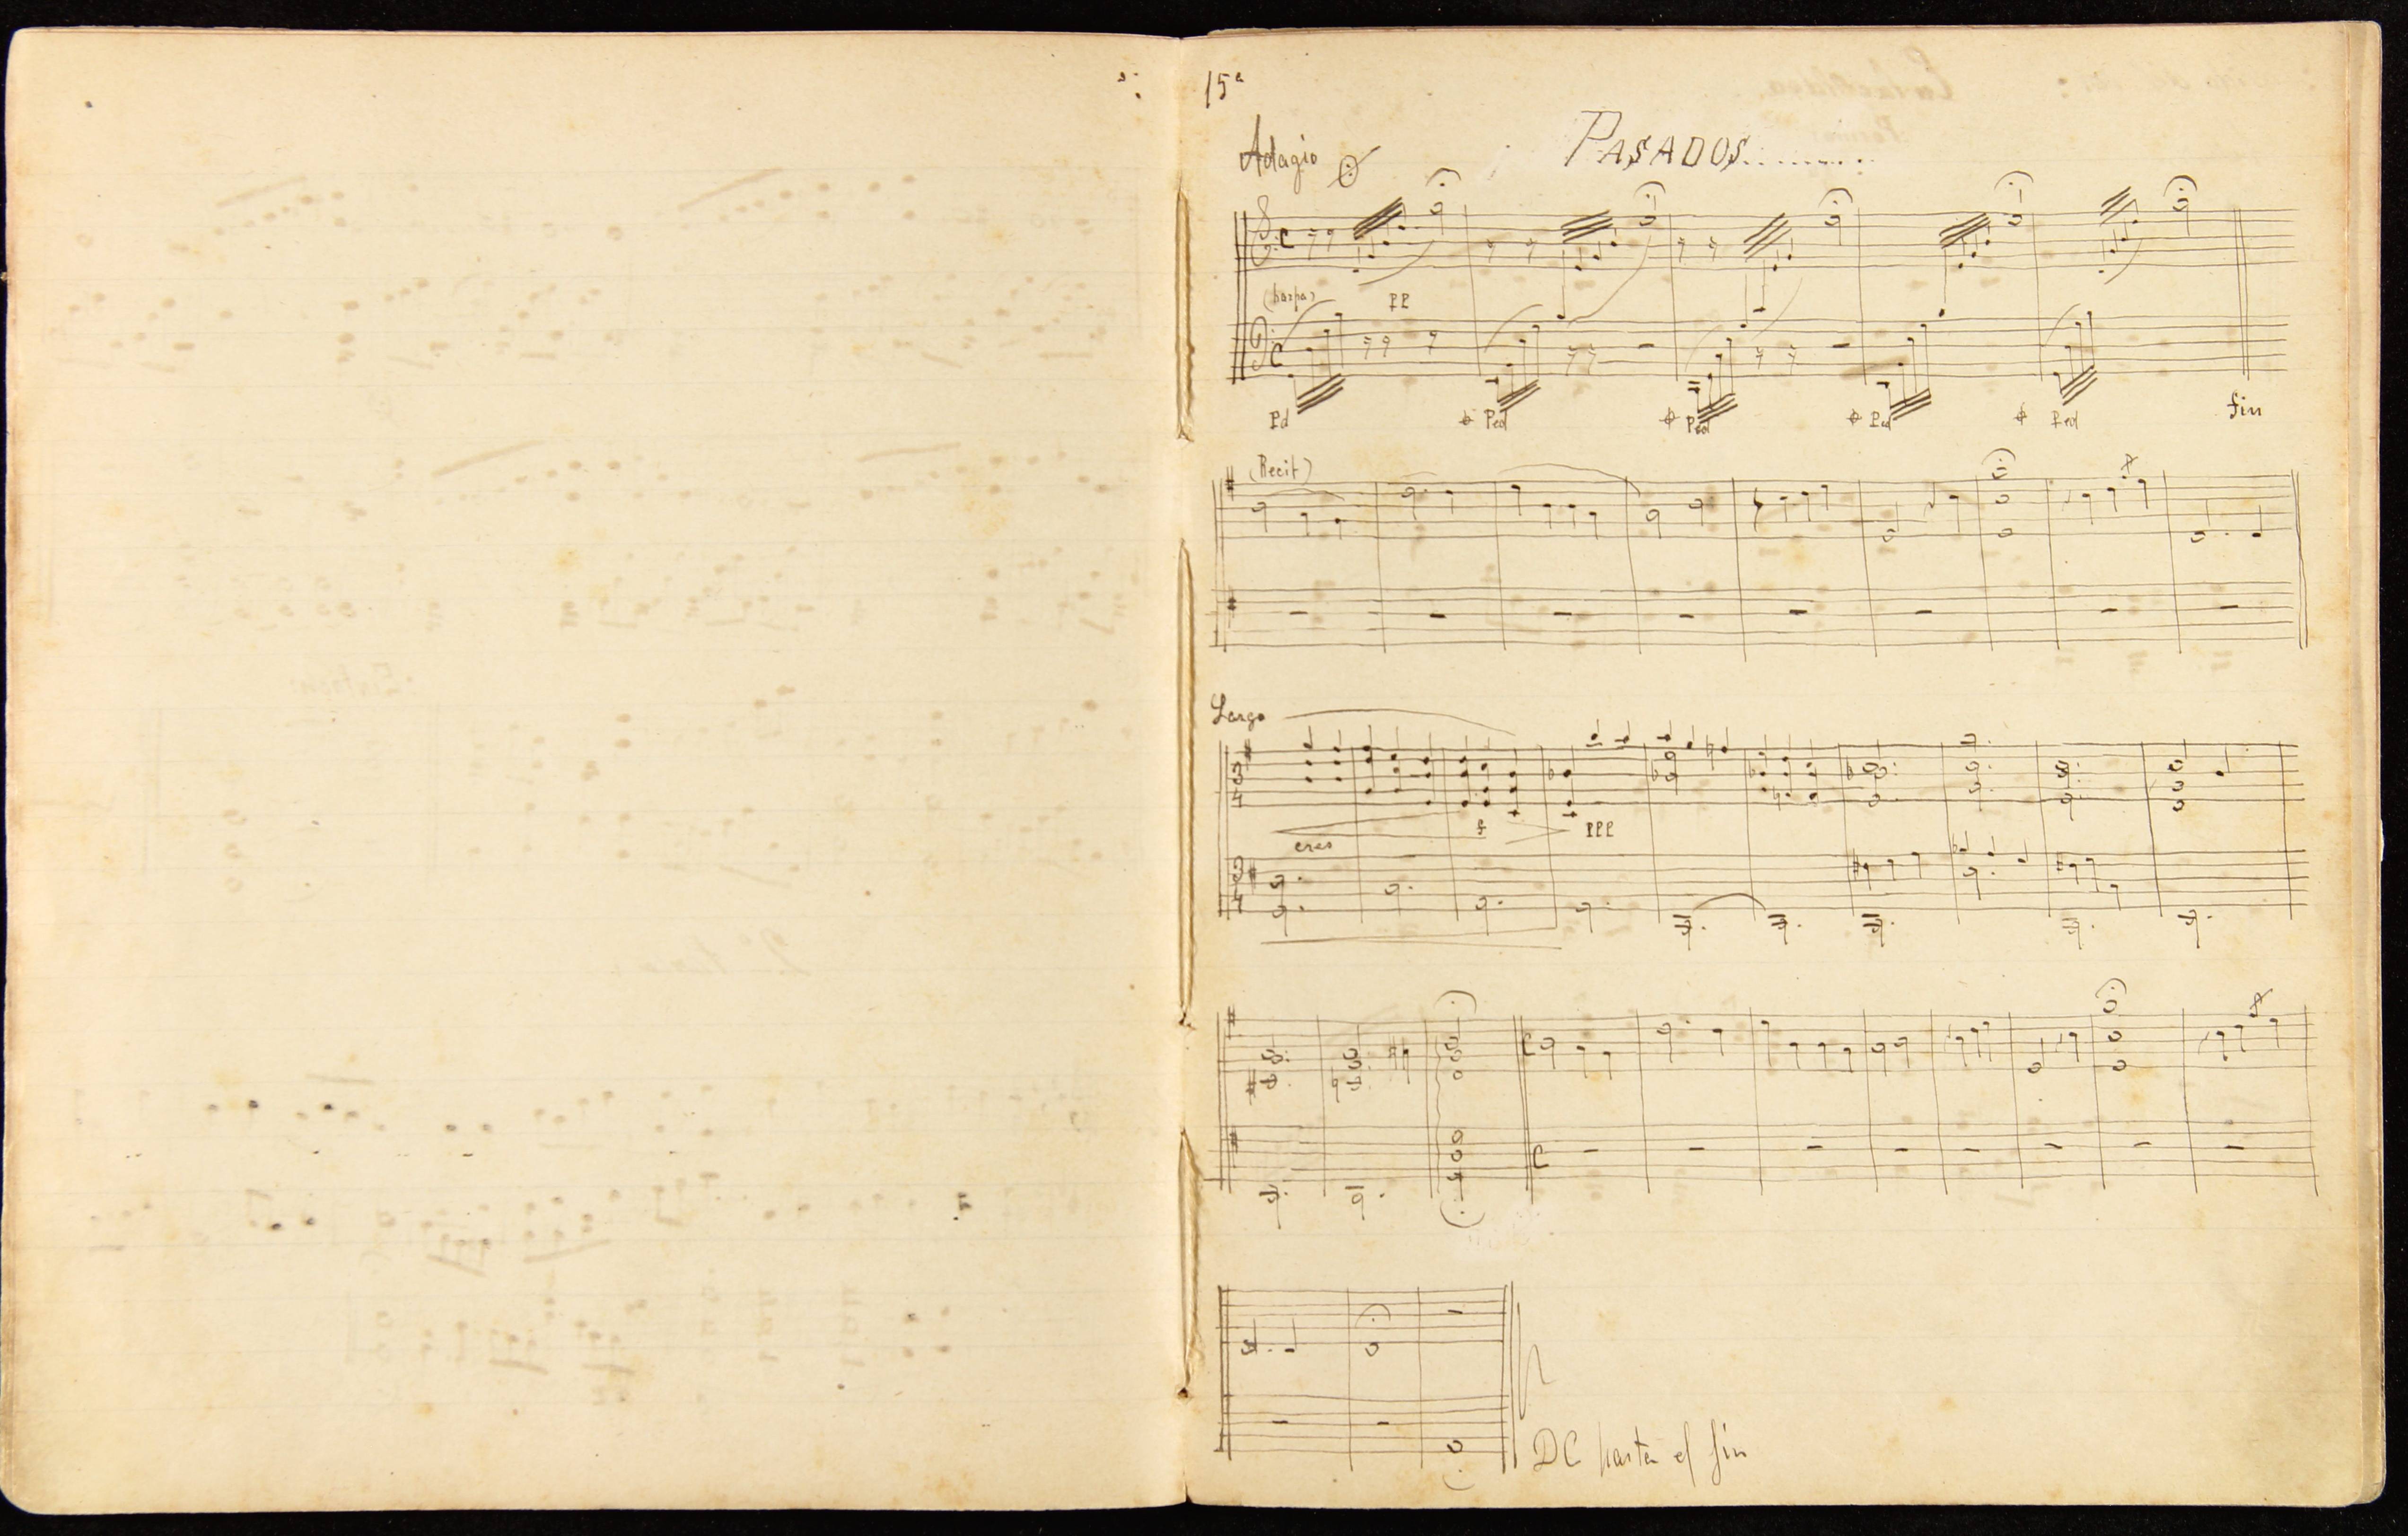 15ª
Adagio
PASADOS.........
(harpa)
PP
Pd
Ped
Ped
Ped
Ped
fin
(Recit)
Largo
3
4
cres
f
PPP
3
4
DC hasta el fin